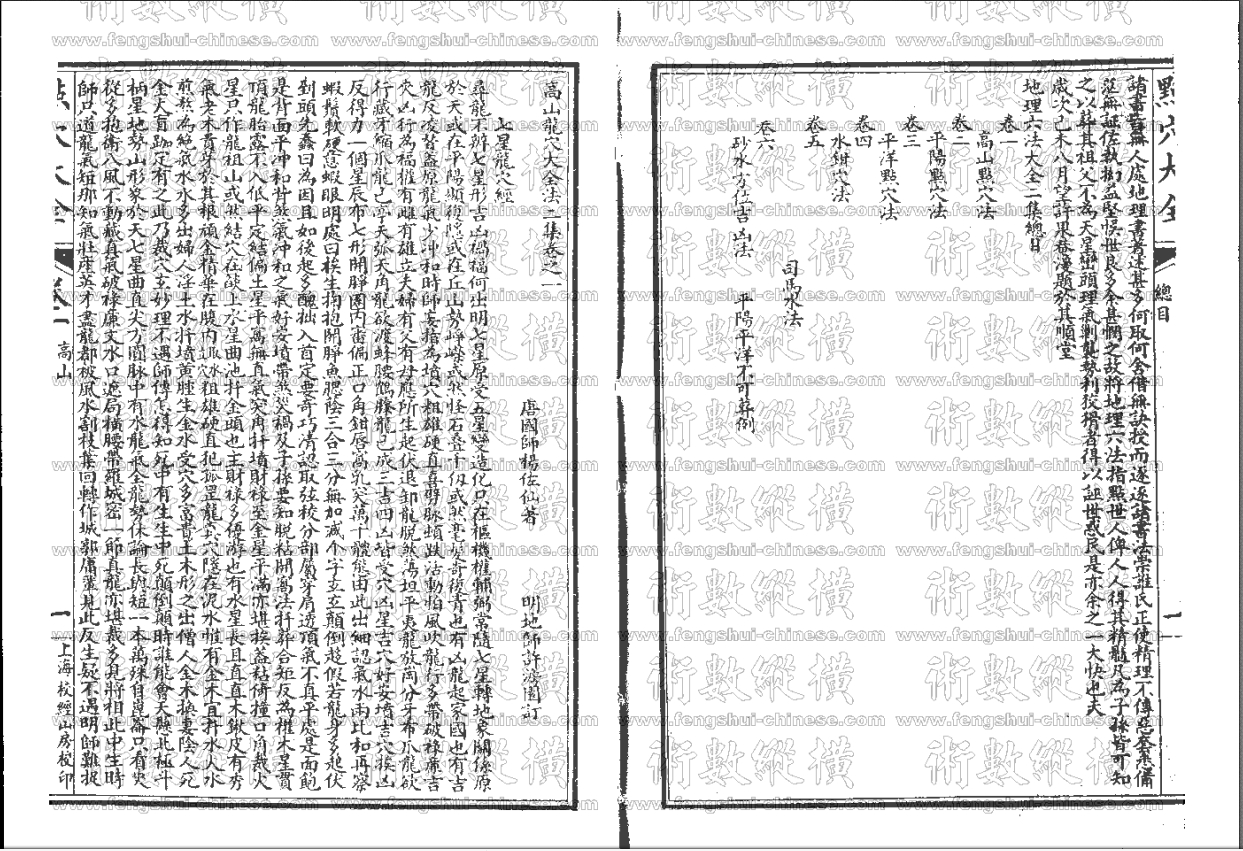 點穴大全
總目
一
諸書皆無人處地理書者述甚多何取何舍借無訣授而逐逐諸書法崇誰氏正使精理不傳
茫無証佐執拗益堅悞世良多余甚憫之故將地理六法指點世人俾人人得其精髓凡為子孫皆可知
之以葬其祖父不為天星巒頭理氣剿襲勢利狡猾者得以誣世惑民是亦余之一大快也夫
歲次己未八月望許
題於其順堂
地理六法大全二集總目
卷一
高山點穴法
卷二
平陽點穴法
卷三
平洋點穴法
卷四
水鉗穴法
卷五
司馬水法
卷六
砂水方位吉凶法
平陽平洋不可葬例
高山龍穴大全法二集卷之一
唐國師楊佐仙著
明地師許
訂
七星龍穴經
尋龍不辨七星形吉凶禍福何出明七星原受五星變造化只在樞機權輔弼常隨七星轉地象關係原
於天或在平陽顯複隱或在丘山勢崢嶸或然怪石叠千仭或然毫
也有凶龍起家國也有吉
龍反凌替蓋原龍氣少冲和時師妄指為墳穴粗雄硬直喜劈脉
活動怕風吹龍行多帶破祿廉吉
穴凶行為福權有雌有雄立夫婦有父有母應所生起伏退卸龍脫煞蕩坦平夷龍放岡分牙布爪龍欲
行藏牙縮爪龍已
龍欲渡蜂腰鶴膝龍已成三吉四凶皆受穴凶星吉穴好安墳吉穴挨凶
反得力一個星辰布七形開睜
內審偏正口角鉗唇窩乳突萬千體態由此出細認氣水兩比和再察
蝦鬚軟硬意蝦眼明處曰
生拘抱開睜魚腮陰三合三分無加減个字立立顛倒趨假若龍身多起伏
到頭先
曰為因且如後起多醜拙入首定要奇巧清認取弦稜分部屬穿肩透頂氣不真平處是面飽
是背面平冲和背煞氣冲和之氣好安墳帶煞災禍及子孫要知脫粘開窩法扦葬合矩反為權木星貫
頂龍胎露不入低平定結偏土星平萬無真氣突角扦墳財祿至金星平滿亦堪挨蓋粘倚撞口角裁火
星只作龍祖山或然結穴在
上水星曲池扦金頭也主財祿多優游也有水星長且直直木鍬皮有秀
氣老木貴芽於其根頑金精華在腹內
粗雄硬直犯孤罡龍真穴隱在泥水惟有金木宜扦水入水
煎熬為絕氣水水多出婦人淫土水扦墳黃腫生金水受穴多富貴土木形之出僧人金木換妻陰人死
金火盲跏定有之此乃裁穴玄妙理不遇師傳怎得知死中有生生中死顛倒顛時誰能會天驗北極斗
柄星地勢山形象於天七星曲直尖方圓脉中有水龍氣全龍勢休論長與短一本萬殊自崑崙只看夾
從多抱衛八風不動藏真氣破祿廉文水口遮局橫腰帶羅城密一節真龍亦堪裁多見將相此中生時
師只道龍氣短那知氣壯產英才盡龍都被風水割枝葉回轉作城郭庸輩見此反生疑不遇明師難捉
點穴大全
卷一
高山
一
上海校經山房校印
術數縱橫
www.fengshui-chinese.com